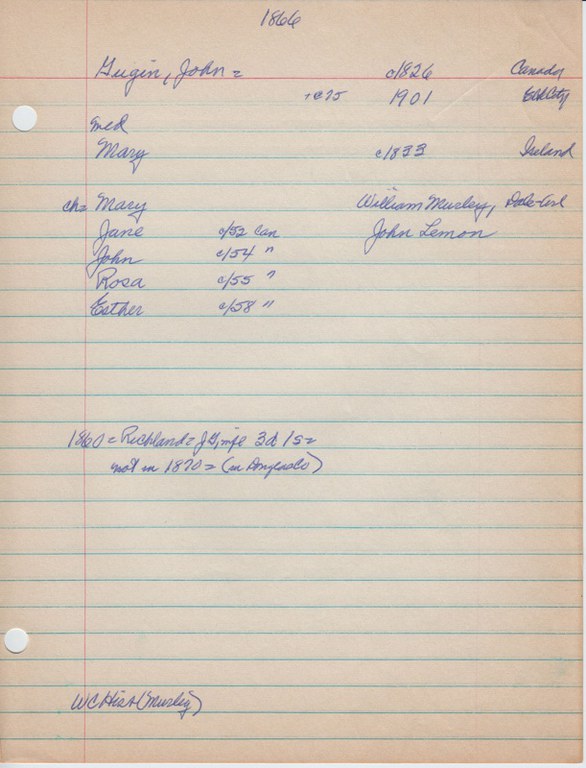 1866
Gugin, John = c/1826 Canada
+ c 75 1901 Elk City
med
Mary c/1833 Ireland
ch = Mary William Musley,
Jane c/52 Can John Lemon
John c/54 "
Rosa c/55 "
Esther c/58 "
1860 = Richland = J G, wife 3d 1s =
not in 1870 = (in Douglas Co)
WC Hist (Musley)